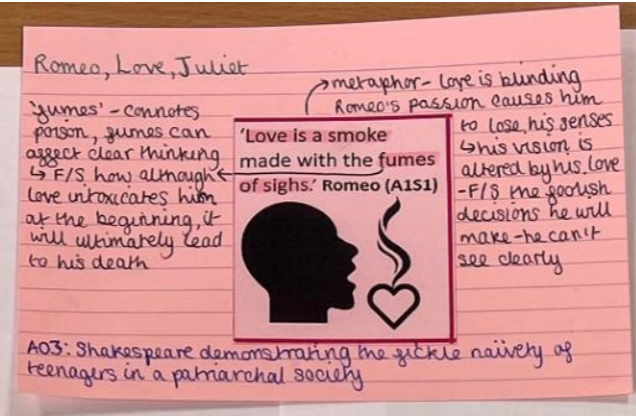 Romeo, Love, Juliet
'fumes' - connotes
poison, fumes can
affect clear thinking
↳ F/S how although
love intoxicates him
at the beginning, it
will ultimately lead
to his death
'Love is a smoke
made with the fumes
of sighs.' Romeo (A1S1)
metaphor - love is blinding
Romeo's passion causes him
to lose his senses
↳ his vision is
altered by his love
- F/S the foolish
decisions he will
make - he can't
see clearly
AO3: Shakespeare demonstrating the fickle naïvety of
teenagers in a patriarchal society